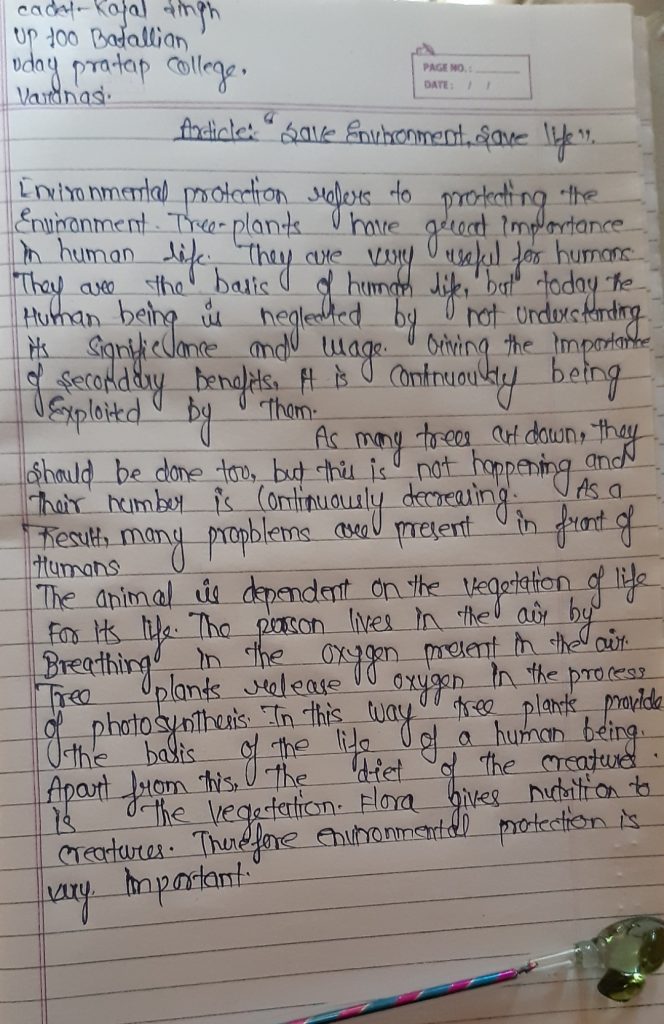 cadet- Kajal Singh
UP 100 Batallian
Uday pratap College.
Varanasi.
PAGE NO.:
DATE: / /
Article: "Save Environment, Save life".
Environmental protection refers to protecting the
Environment. Tree-plants have gereat importance
In human life. They are very useful for humans
They are the basis of human life, but today the
Human being is neglected by not understanding
its significance and usage. Giving the importance
of secondary benefits, it is continuously being
Exploited by them.
As many trees cut down, they
should be done too, but this is not happening and
Their number is continuously decreasing. As a
Result, many propblems are present in front of
Humans
The animal is dependent on the vegetation of life
For its life. The person lives in the air by
Breathing in the oxygen present in the air.
Tree plants release oxygen in the process
of photosynthesis. In this way tree plants provide
the basis of the life of a human being.
Apart from this, the diet of the creatures
is the vegetation. Flora gives nutrition to
creatures. Therefore environmental protection is
very important.